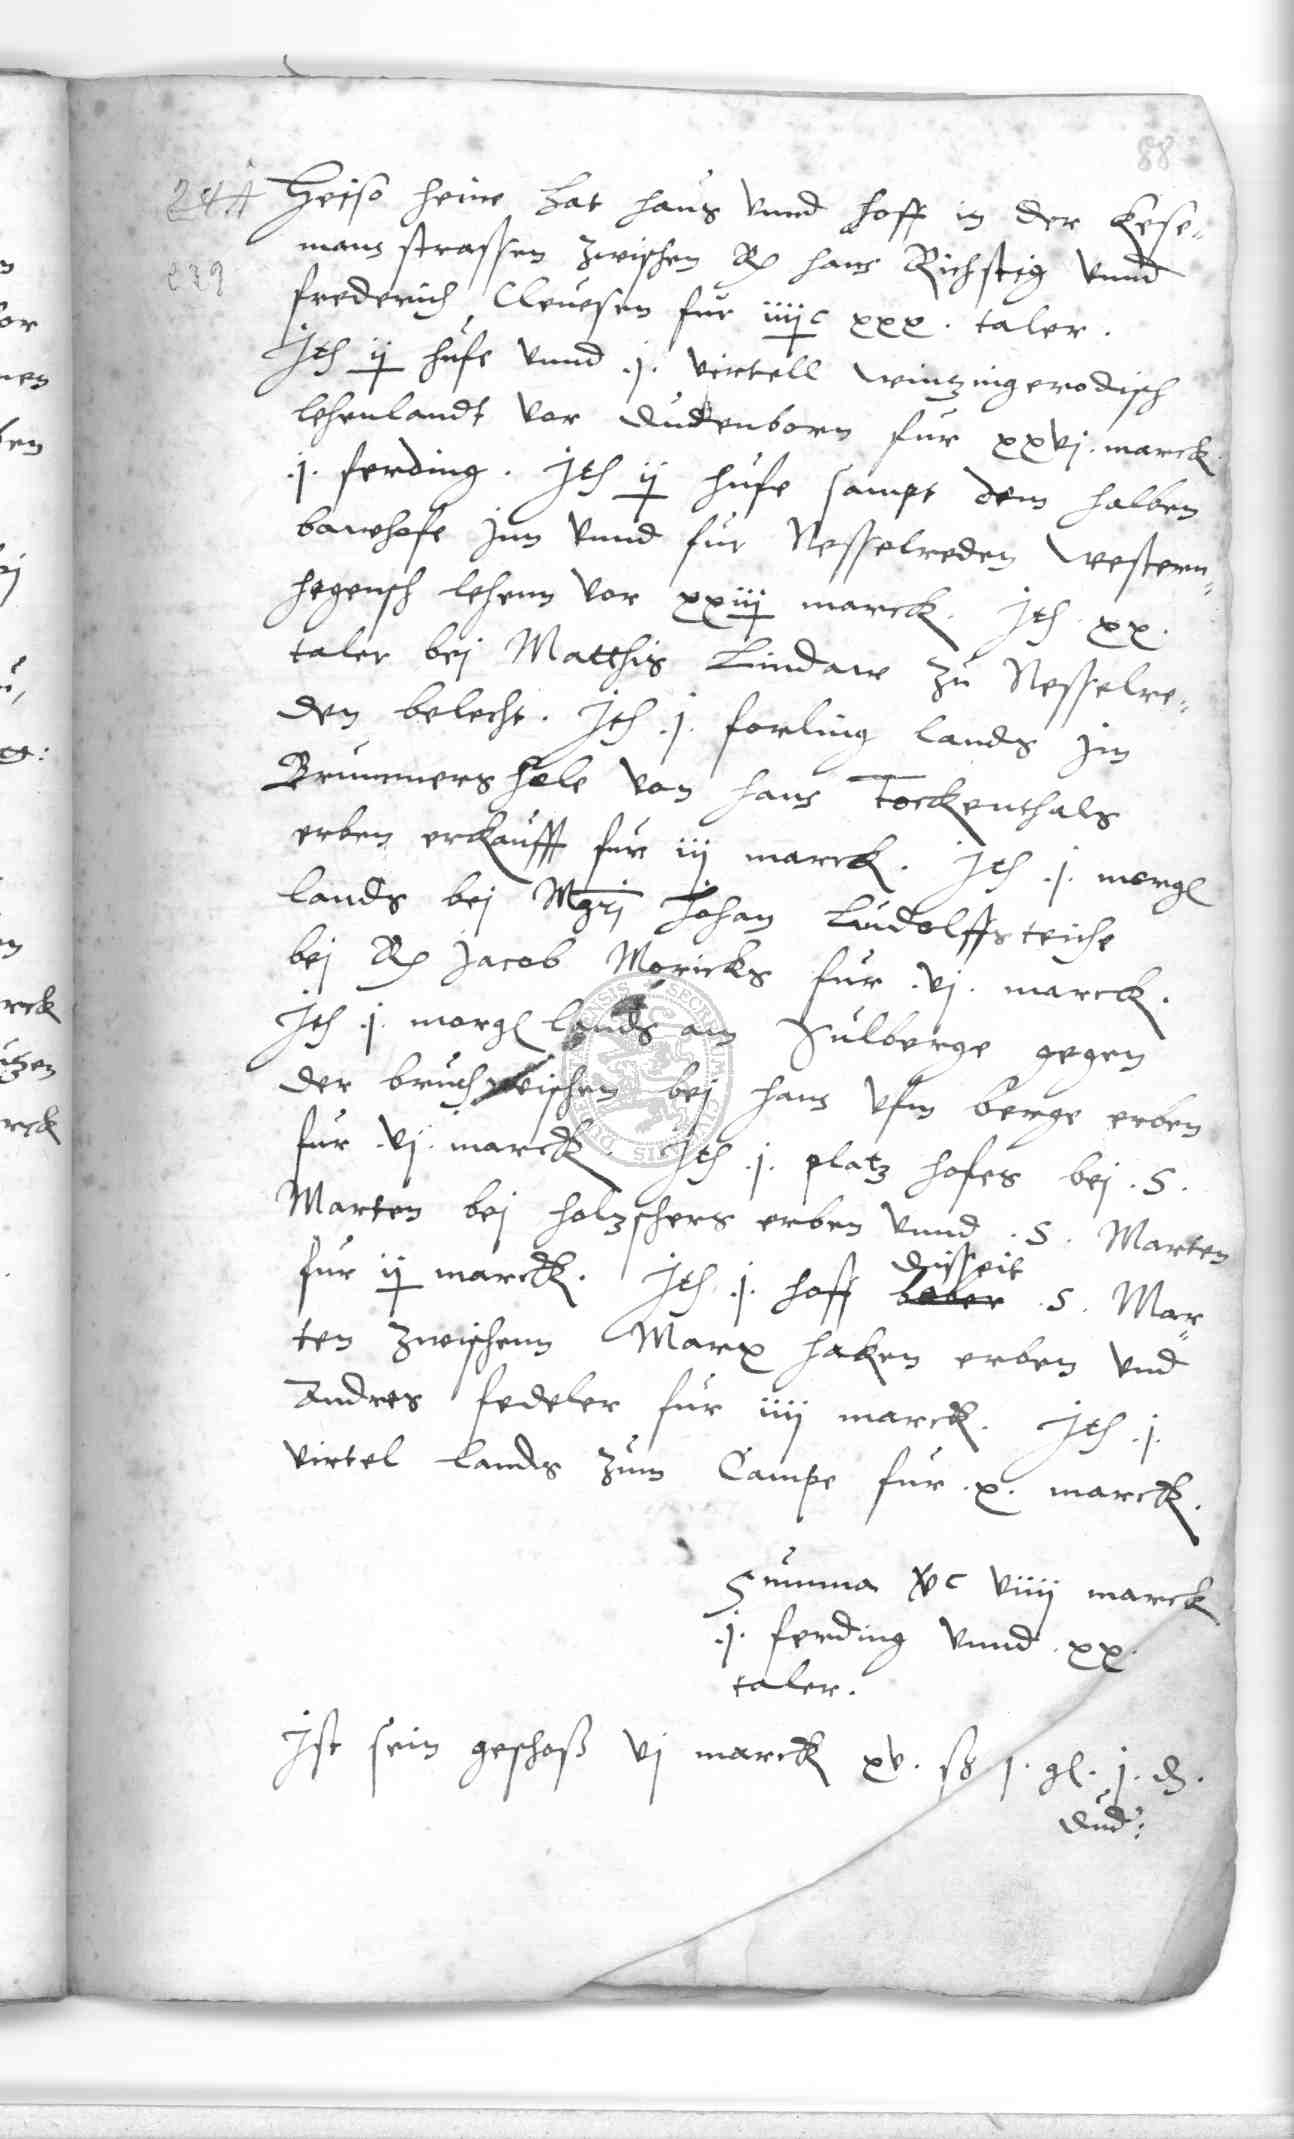 88
244 Heiso heine hat haus vnnd hoff in der Kese-
239 mans strassen zwischen Rh hans Richstig vnnd
frederich Cleuesen fur iiijc xxx. taler.
Ith ij hufe vnnd .j. virtell wintzingerodisch
lehenlandt vor dudenborn fur xxvj. marck
.j. ferding. Ith ij hufe sampt dem halben
bawhofe jnn vnnd fur Nesselreden western-
hegensch lehenn vor xxiij marck. Ith xx.
taler bej Matthis Lindaw zu Nesselre-
den belecht. Ith .j. forling lands jm
Brummers hole von hans Tockenthals
erben erkaufft fur iij marck. Ith .j. morgl
lands bej Mgrj Johan Ludolffs teiche
bej Rh Jacob Moricks fur .vj. marck.
Ith .j. morgl lands am Sulberge gegen
der bruch bej hans vfm berge erben
fur .vj. marck. Ith .j. platz hofes bej .S.
Marten bej holzschers erben vnnd .S. Marten
disseit
fur ij marck. Ith .j. hoff .S. Mar-
ten zwischenn Marx haken erben vnd
Andres fedeler fur iiij marck. Ith .j.
virtel lands zum Campe fur .x. marck.
Summa vc viiij marck
.j. ferding vnnd .xx.
taler.
Ist sein geschoß vj marck xv. ß j. gl. j. d.
dud: